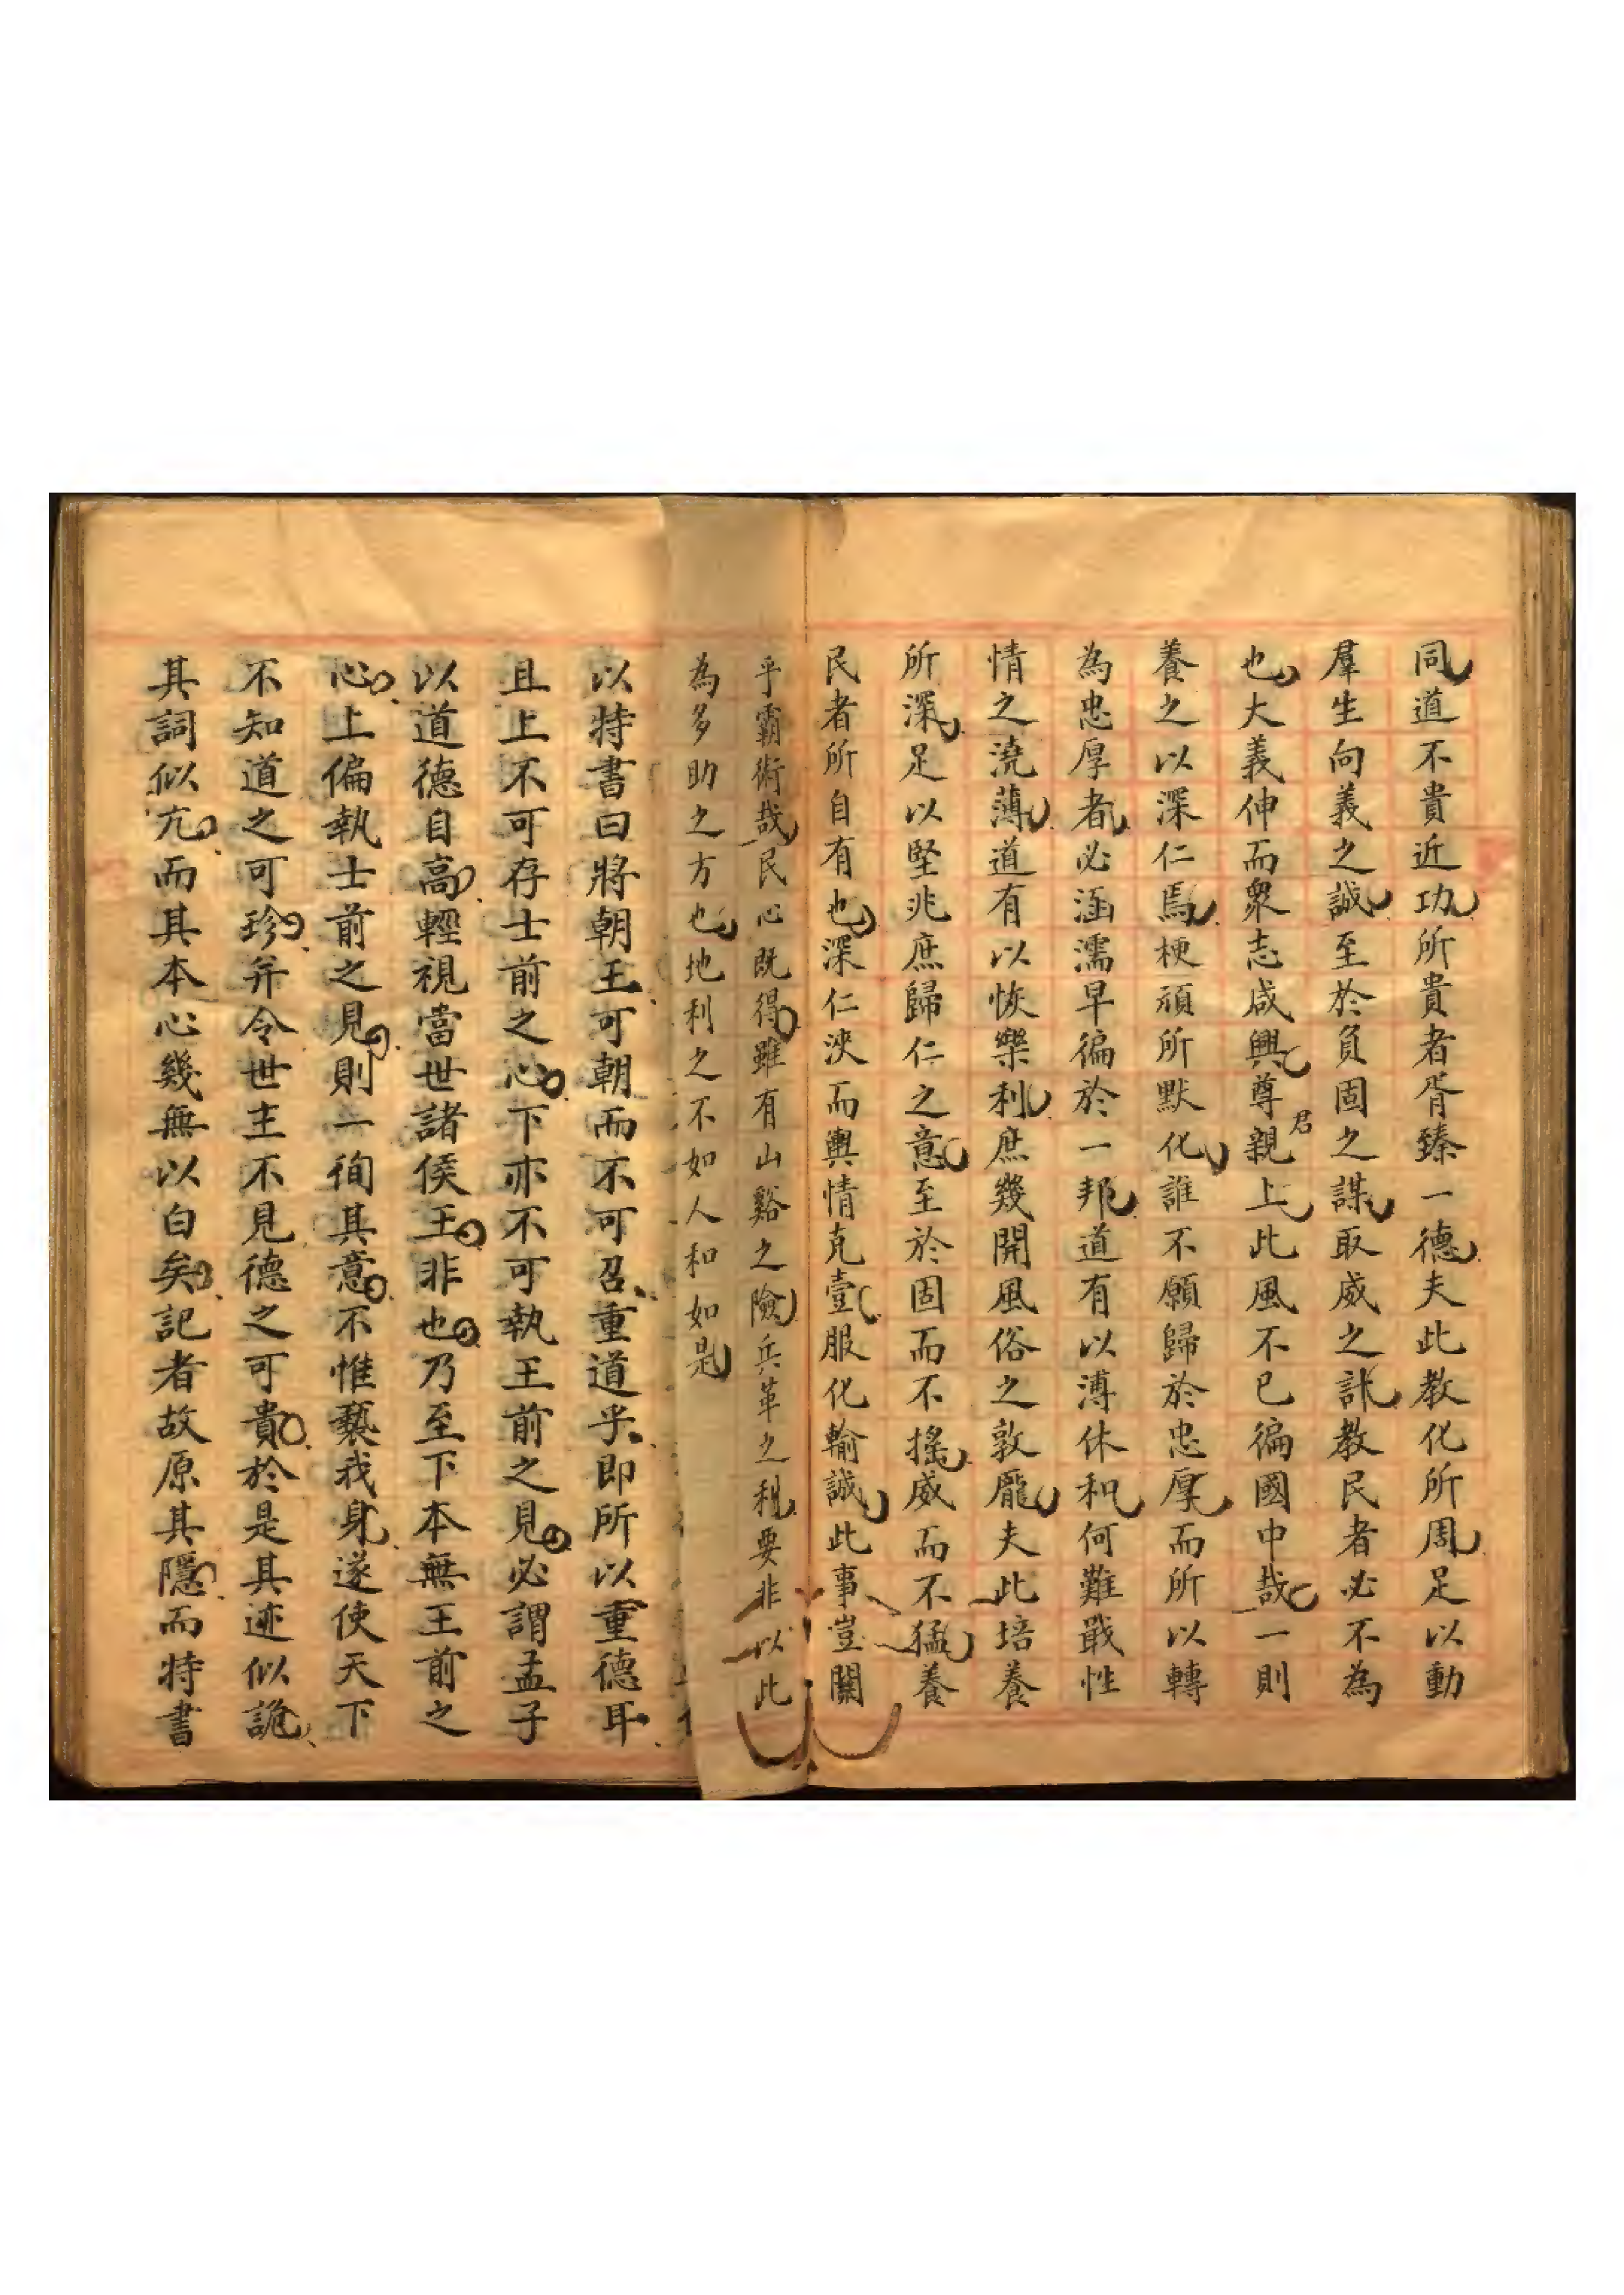 同道不貴近功所貴者胥臻一德夫此教化所周足以動
羣生向義之誠至於負固之謀取威之計教民者必不為
也大義伸而衆志咸興尊君親上此風不已徧國中哉一則
養之以深仁焉梗頑所默化誰不願歸於忠厚而所以轉
為忠厚者必涵濡早徧於一邦道有以溥休和何難戢性
情之澆薄道有以恢樂利庶幾開風俗之敦龐夫此培養
所深足以堅兆庶歸仁之意至於固而不搖威而不猛養
民者所自有也深仁浹而輿情克壹服化輸誠此事豈關
乎霸術哉民心既得雖有山谿之險兵革之利要非以此
為多助之方也地利之不如人和如是
以特書曰將朝王可朝而不可召重道乎即所以重德耳
且上不可存士前之心下亦不可執王前之見必謂孟子
以道德自高輕視當世諸侯王非也乃至下本無王前之
心上偏執士前之見則一徇其意不惟褻我身遂使天下
不知道之可珍并令世主不見德之可貴於是其迹似詭
其詞似亢而其本心幾無以白矣記者故原其隱而特書